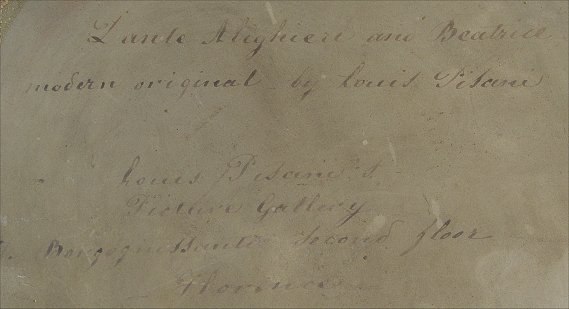 Dante Alighieri and Beatrice
modern original by Louis Pisani
Louis Pisani's
Picture Gallery
Borgognissanti second floor
Florence